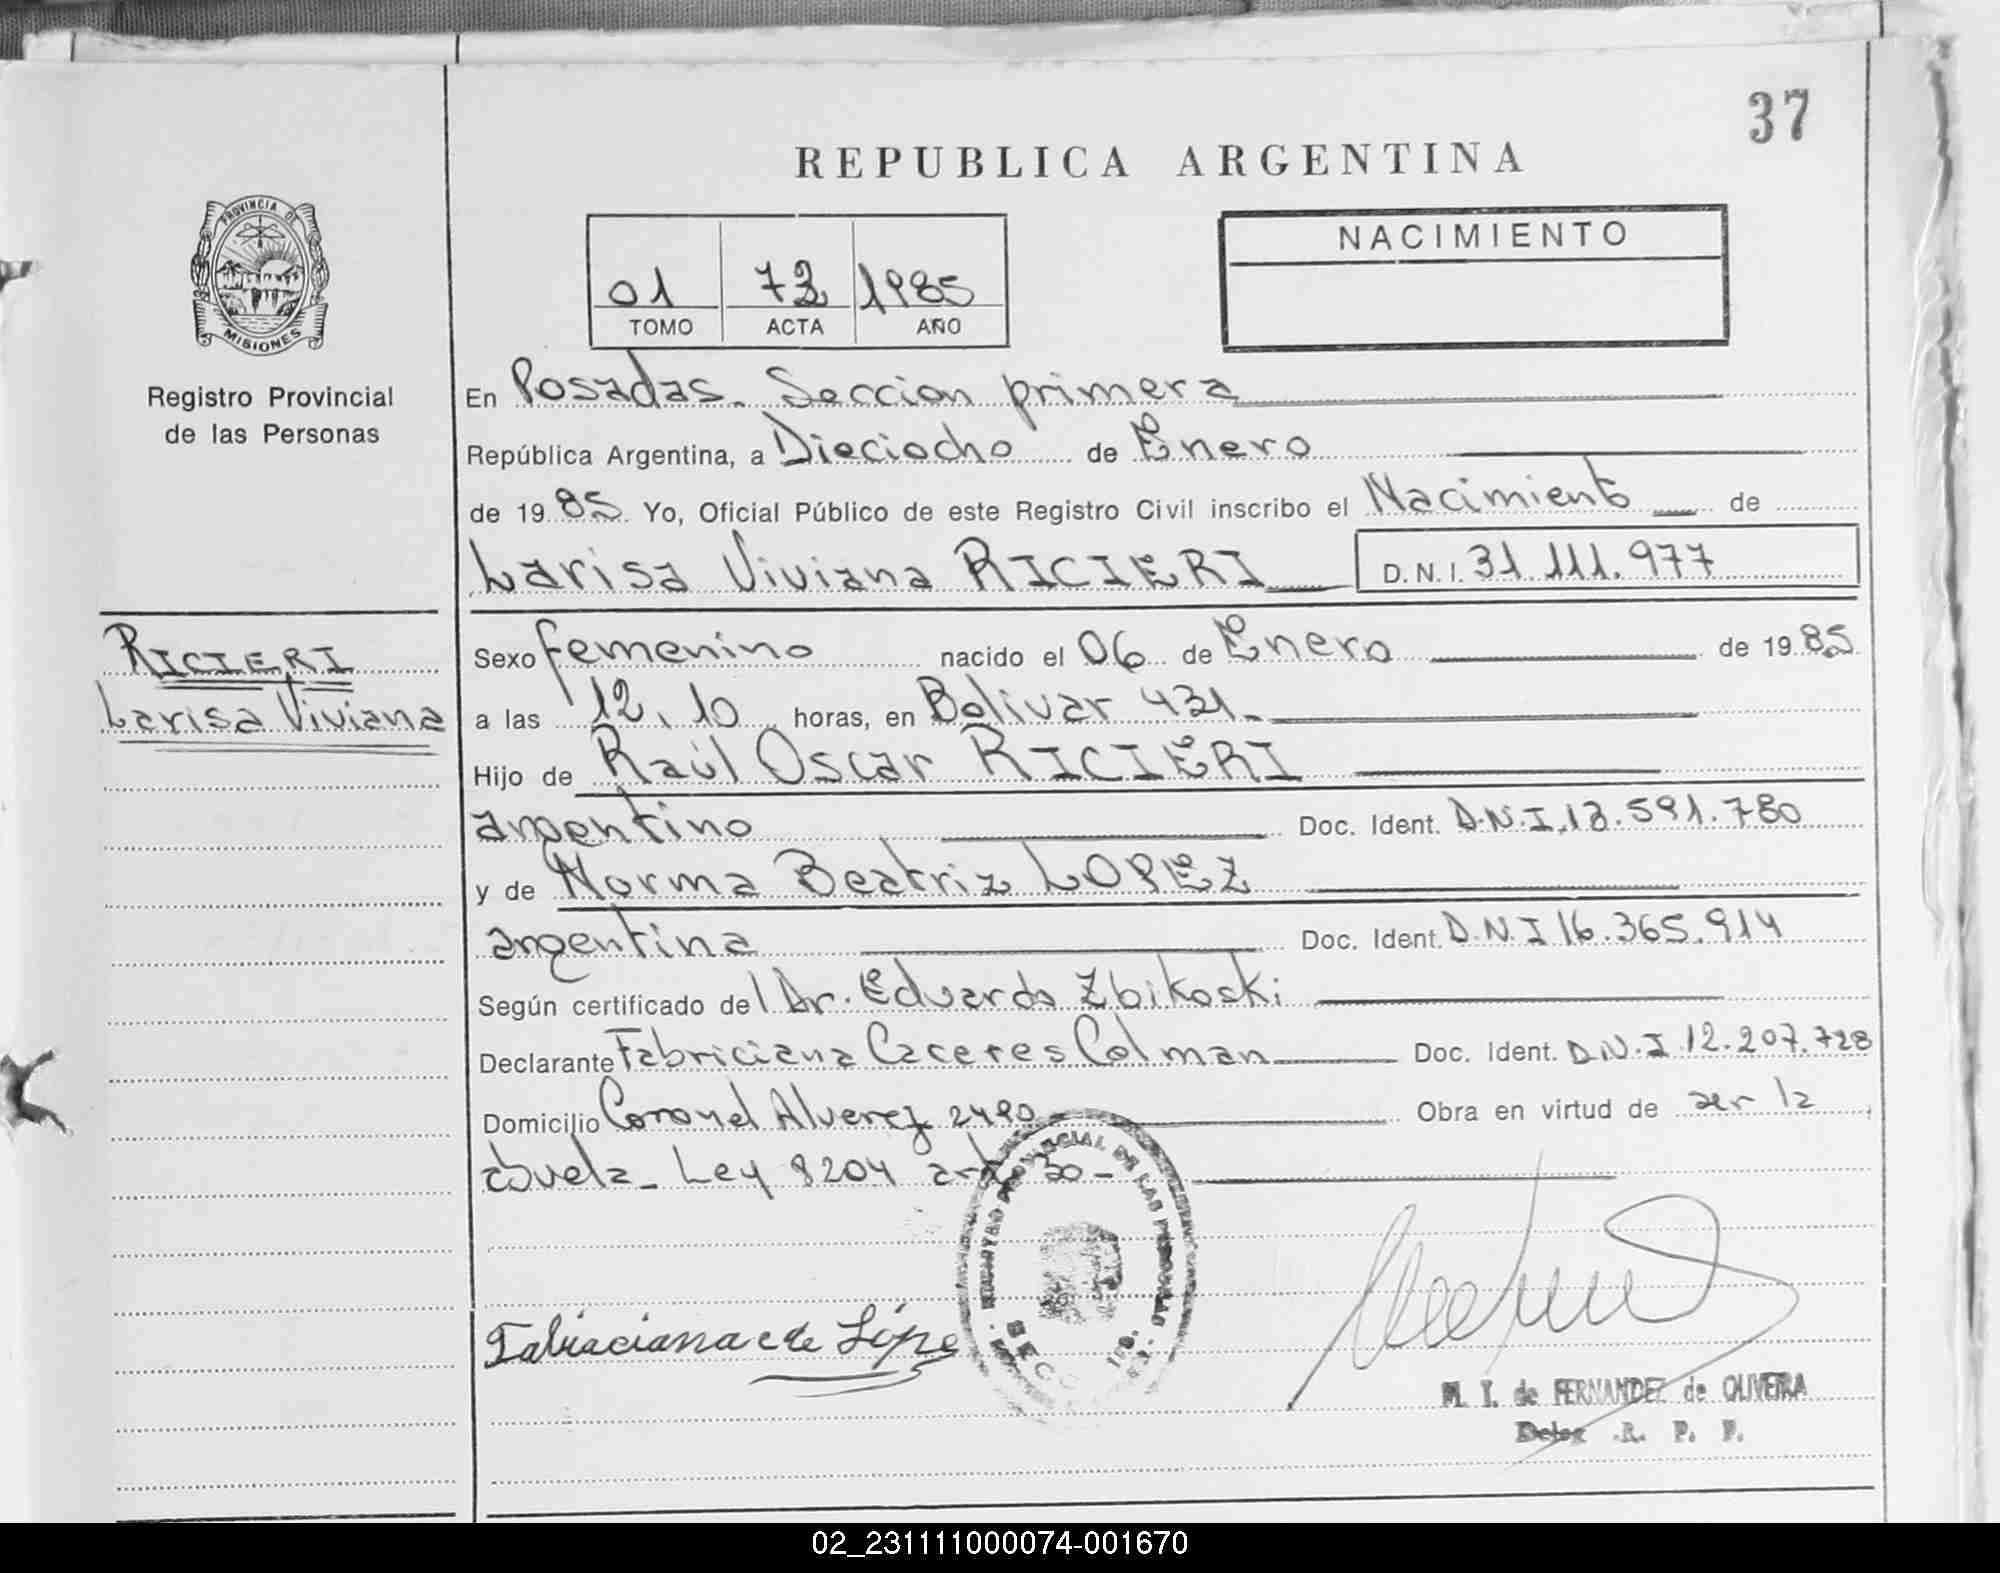 37
REPUBLICA ARGENTINA
PROVINCIA DE
MISIONES
Registro Provincial
de las Personas
01 72 1985
TOMO ACTA AÑO
NACIMIENTO
En Posadas. Seccion primera
República Argentina, a Dieciocho de Enero
de 1985. Yo, Oficial Público de este Registro Civil inscribo el Nacimiento de
Larisa Viviana RICIERI D.N.I. 31.111.977
RICIERI
Larisa Viviana
Sexo femenino nacido el 06 de Enero de 1985
a las 12,10 horas, en Bolivar 431.
Hijo de Raúl Oscar RICIERI
argentino Doc. Ident. D.N.I. 13.591.780
y de Norma Beatriz LOPEZ
argentina Doc. Ident. D.N.I 16.365.914
Según certificado del Dr. Eduardo Zbikoski
Declarante Fabriciana Caceres Colman Doc. Ident. D.N.I. 12.207.728
Domicilio Coronel Alverez 2490 Obra en virtud de ser la
abuela_ Ley 8204 art 30_
REGISTRO PROVINCIAL DE LAS PERSONAS
Fabriaciana c de Lópe
M. I. de FERNANDEZ de OLIVEIRA
Deleg .R. P. P.
02_231111000074-001670